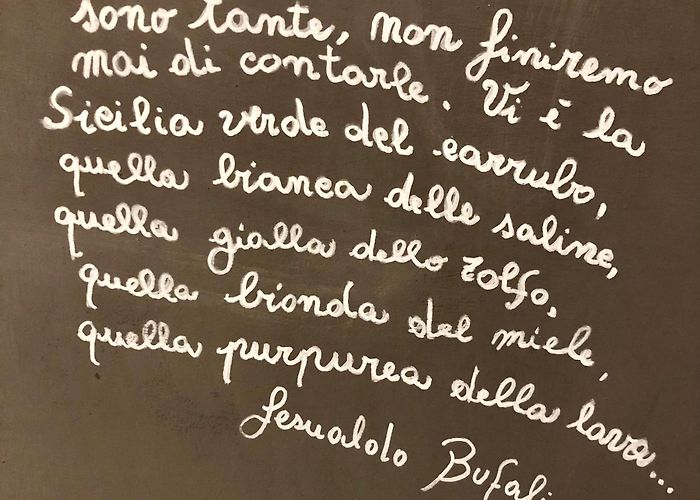 sono tante, non finiremo
mai di contarle. Vi è la
Sicilia verde del carrubo,
quella bianca delle saline,
quella gialla dello zolfo,
quella bionda del miele,
quella purpurea della lava...
Gesualdo Bufali